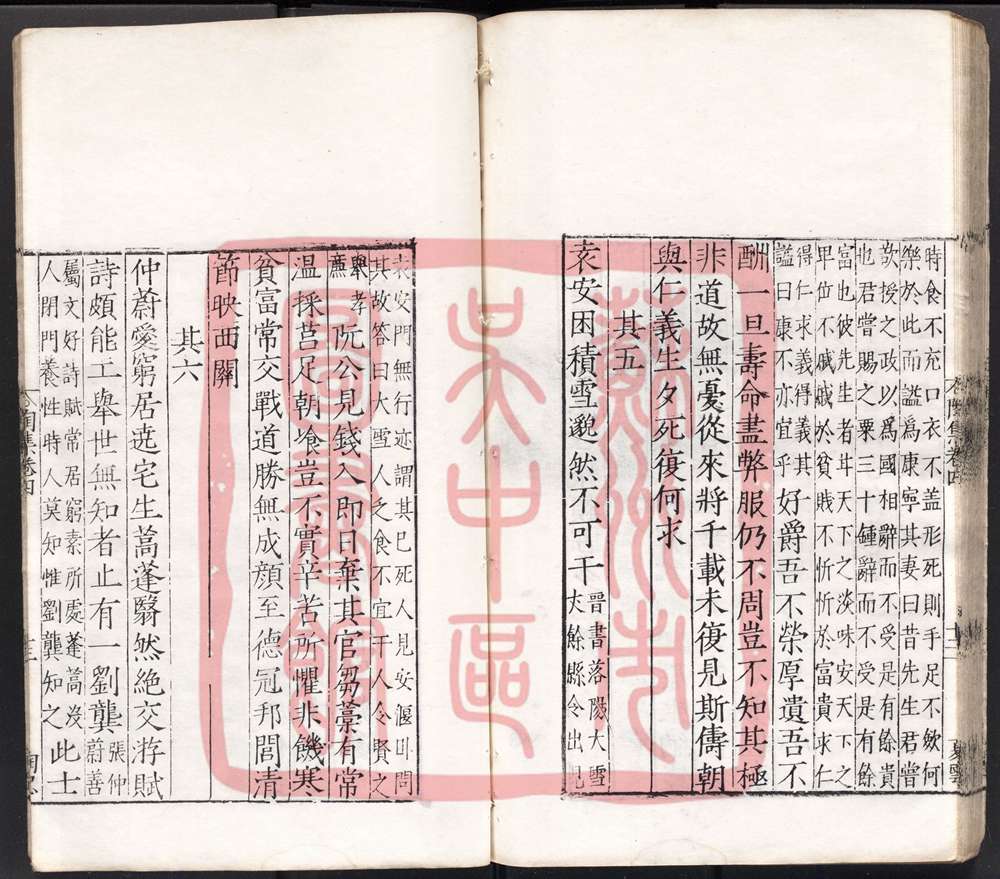 時食不充口衣不盖形死則手足不歛何
樂於此而謚爲康寧其妻曰昔先生君嘗
欲授之政以爲國相辭而不受是有餘貴
也君嘗賜之粟三十鍾辭而不受是有餘
富也彼先生者甘天下之淡味安天下之
卑位不戚戚於貧賤不忻忻於富貴求仁
得仁求義得義其
謚曰康不亦宜乎
好爵吾不榮厚遺吾不
酬一旦壽命盡弊服仍不周豈不知其極
非道故無憂從來將千載未復見斯儔朝
與仁義生夕死復何求
其五
袁安困積雪邈然不可干
晉書落陽大雪
丈餘縣令出見
袁安門無行迹謂其已死人見安偃卧問
其故答曰大雪人之食不宜干人令賢之
舉孝
廉
阮公見錢入即日棄其官芻藁有常
温採莒足朝飡豈不實辛苦所懼非饑寒
貧富常交戰道勝無成顔至德冠邦閭清
節映西關
其六
仲蔚愛窮居遶宅生蒿蓬翳然絶交游賦
詩頗能工舉世無知者止有一劉龔
張仲
蔚善
屬文好詩賦常居窮素所處蓬蒿沒
人閉門養性時人莫知惟劉龔知之
此士
蘇州市
吳中區
圖書館